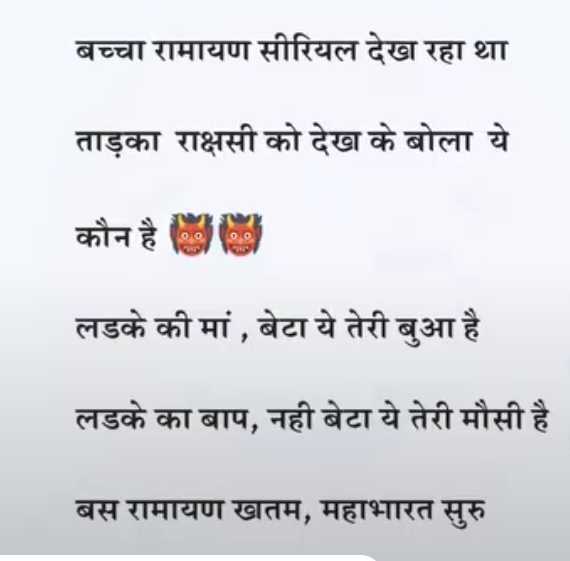 बच्चा रामायण सीरियल देख रहा था
ताड़का राक्षसी को देख के बोला ये
कौन है 👹👹
लडके की मां , बेटा ये तेरी बुआ है
लडके का बाप, नही बेटा ये तेरी मौसी है
बस रामायण खतम, महाभारत सुरु